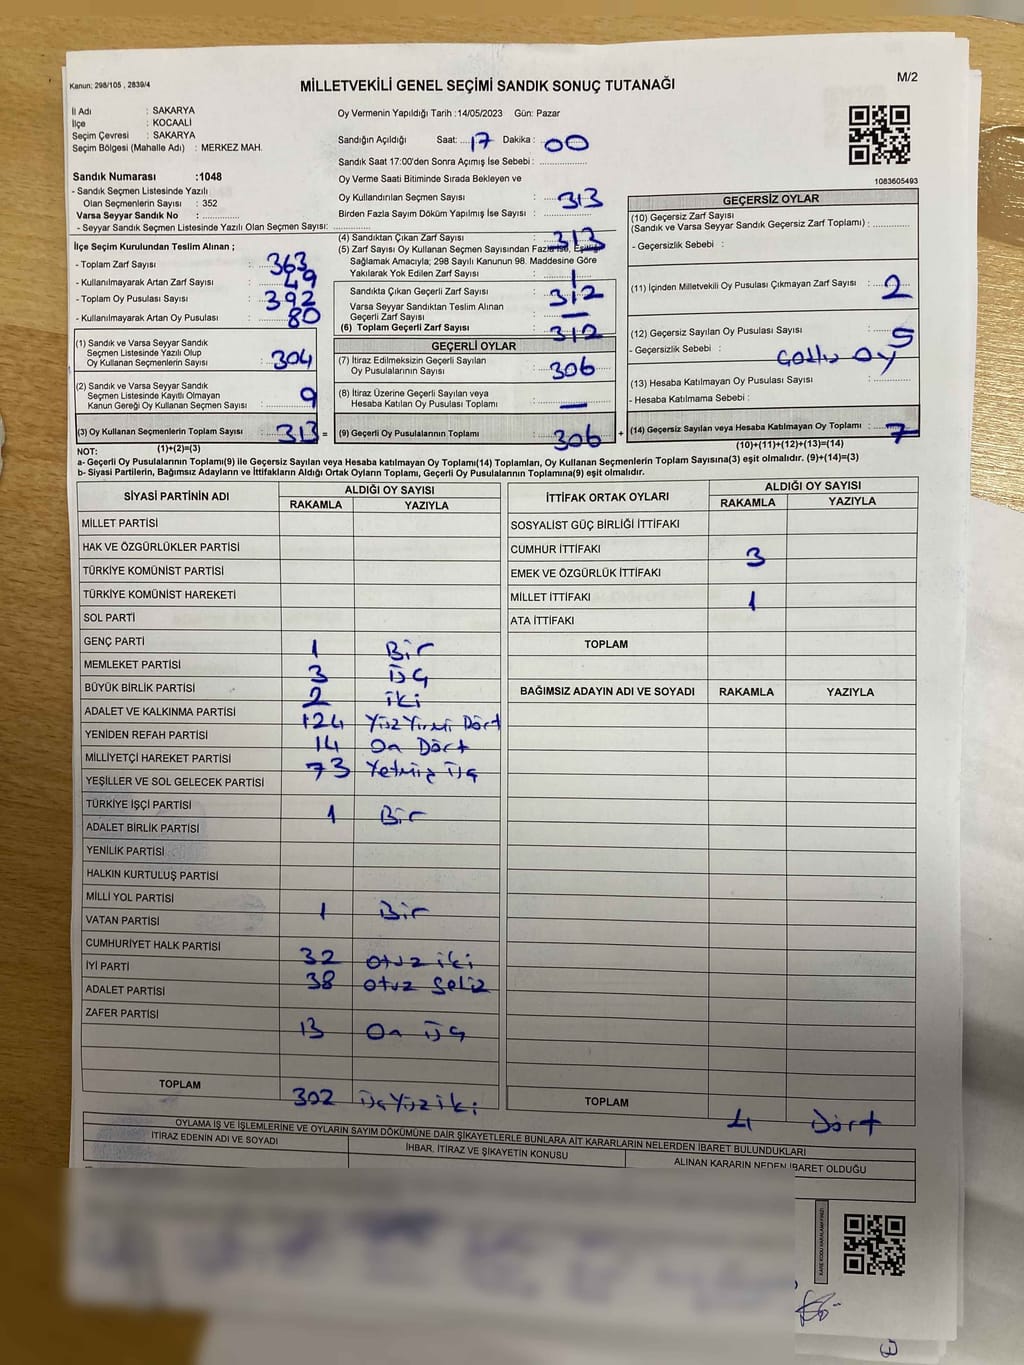 Kanun: 298/105 , 2839/4
MİLLETVEKİLİ GENEL SEÇİMİ SANDIK SONUÇ TUTANAĞI
M/2
İl Adı : SAKARYA
İlçe : KOCAALİ
Seçim Çevresi : SAKARYA
Seçim Bölgesi (Mahalle Adı) : MERKEZ MAH.
Sandık Numarası :1048
- Sandık Seçmen Listesinde Yazılı
Olan Seçmenlerin Sayısı : 352
Varsa Seyyar Sandık No :
- Seyyar Sandık Seçmen Listesinde Yazılı Olan Seçmen Sayısı:
Oy Vermenin Yapıldığı Tarih :14/05/2023 Gün: Pazar
Sandığın Açıldığı Saat: 17 Dakika : 00
Sandık Saat 17:00'den Sonra Açımış İse Sebebi :
Oy Verme Saati Bitiminde Sırada Bekleyen ve
Oy Kullandırılan Seçmen Sayısı : 313
Birden Fazla Sayım Döküm Yapılmış İse Sayısı :
1083605493
İlçe Seçim Kurulundan Teslim Alınan ;
- Toplam Zarf Sayısı : 363
- Kullanılmayarak Artan Zarf Sayısı : 49
- Toplam Oy Pusulası Sayısı : 392
- Kullanılmayarak Artan Oy Pusulası : 80
(1) Sandık ve Varsa Seyyar Sandık
Seçmen Listesinde Yazılı Olup
Oy Kullanan Seçmenlerin Sayısı : 304
(2) Sandık ve Varsa Seyyar Sandık
Seçmen Listesinde Kayıtlı Olmayan
Kanun Gereği Oy Kullanan Seçmen Sayısı : 9
(3) Oy Kullanan Seçmenlerin Toplam Sayısı : 313 =
(1)+(2)=(3)
(4) Sandıktan Çıkan Zarf Sayısı : 313
(5) Zarf Sayısı Oy Kullanan Seçmen Sayısından Fazla İse, Eşitliği
Sağlamak Amacıyla; 298 Sayılı Kanunun 98. Maddesine Göre
Yakılarak Yok Edilen Zarf Sayısı : 1
Sandıkta Çıkan Geçerli Zarf Sayısı : 312
Varsa Seyyar Sandıktan Teslim Alınan
Geçerli Zarf Sayısı : —
(6) Toplam Geçerli Zarf Sayısı : 312
GEÇERLİ OYLAR
(7) İtiraz Edilmeksizin Geçerli Sayılan
Oy Pusulalarının Sayısı : 306
(8) İtiraz Üzerine Geçerli Sayılan veya
Hesaba Katılan Oy Pusulası Toplamı : —
(9) Geçerli Oy Pusulalarının Toplamı : 306 +
GEÇERSİZ OYLAR
(10) Geçersiz Zarf Sayısı
(Sandık ve Varsa Seyyar Sandık Geçersiz Zarf Toplamı) :
- Geçersizlik Sebebi :
(11) İçinden Milletvekili Oy Pusulası Çıkmayan Zarf Sayısı : 2
(12) Geçersiz Sayılan Oy Pusulası Sayısı : 5
- Geçersizlik Sebebi : oy
(13) Hesaba Katılmayan Oy Pusulası Sayısı :
- Hesaba Katılmama Sebebi :
(14) Geçersiz Sayılan veya Hesaba Katılmayan Oy Toplamı : 7
(10)+(11)+(12)+(13)=(14)
NOT:
a- Geçerli Oy Pusulalarının Toplamı(9) ile Geçersiz Sayılan veya Hesaba katılmayan Oy Toplamı(14) Toplamları, Oy Kullanan Seçmenlerin Toplam Sayısına(3) eşit olmalıdır. (9)+(14)=(3)
b- Siyasi Partilerin, Bağımsız Adayların ve İttifakların Aldığı Ortak Oyların Toplamı, Geçerli Oy Pusulalarının Toplamına(9) eşit olmalıdır.
SİYASİ PARTİNİN ADI ALDIĞI OY SAYISI
RAKAMLA YAZIYLA
MİLLET PARTİSİ
HAK VE ÖZGÜRLÜKLER PARTİSİ
TÜRKİYE KOMÜNİST PARTİSİ
TÜRKİYE KOMÜNİST HAREKETİ
SOL PARTİ
GENÇ PARTİ 1 Bir
MEMLEKET PARTİSİ 3 üç
BÜYÜK BİRLİK PARTİSİ 2 iki
ADALET VE KALKINMA PARTİSİ 124 Yüz Yirmi Dört
YENİDEN REFAH PARTİSİ 14 On Dört
MİLLİYETÇİ HAREKET PARTİSİ 73 Yetmiş üç
YEŞİLLER VE SOL GELECEK PARTİSİ
TÜRKİYE İŞÇİ PARTİSİ 1 Bir
ADALET BİRLİK PARTİSİ
YENİLİK PARTİSİ
HALKIN KURTULUŞ PARTİSİ
MİLLİ YOL PARTİSİ 1 Bir
VATAN PARTİSİ
CUMHURİYET HALK PARTİSİ 32 otuz iki
İYİ PARTİ 38 otuz sekiz
ADALET PARTİSİ
ZAFER PARTİSİ 13 On üç
TOPLAM 302 üç Yüz iki
İTTİFAK ORTAK OYLARI ALDIĞI OY SAYISI
RAKAMLA YAZIYLA
SOSYALİST GÜÇ BİRLİĞİ İTTİFAKI
CUMHUR İTTİFAKI 3
EMEK VE ÖZGÜRLÜK İTTİFAKI
MİLLET İTTİFAKI 1
ATA İTTİFAKI
TOPLAM
BAĞIMSIZ ADAYIN ADI VE SOYADI RAKAMLA YAZIYLA
TOPLAM 4 Dört
OYLAMA İŞ VE İŞLEMLERİNE VE OYLARIN SAYIM DÖKÜMÜNE DAİR ŞİKAYETLERLE BUNLARA AİT KARARLARIN NELERDEN İBARET BULUNDUKLARI
İTİRAZ EDENİN ADI VE SOYADI İHBAR, İTİRAZ VE ŞİKAYETİN KONUSU ALINAN KARARIN NEDEN İBARET OLDUĞU